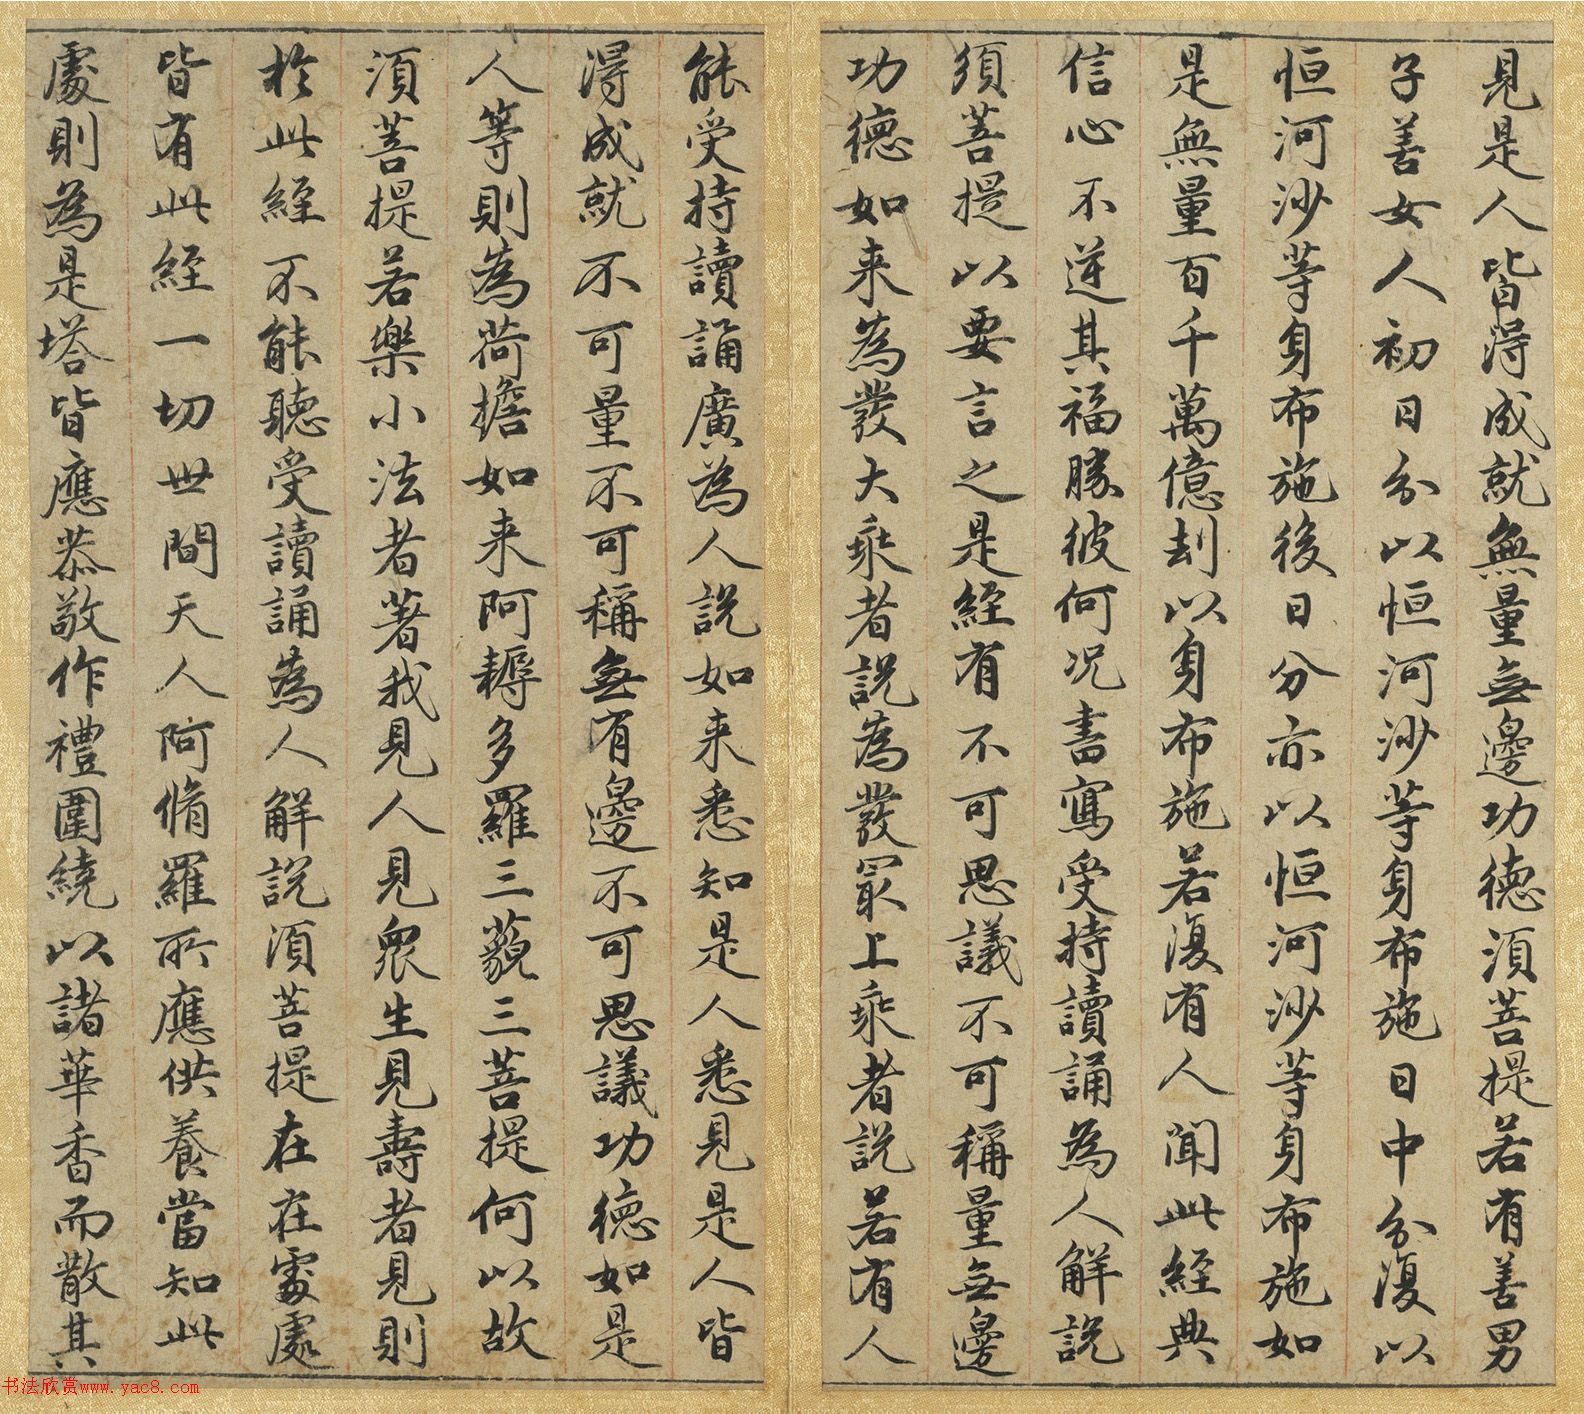 見是人皆得成就無量無邊功德須菩提若有善男
子善女人初日分以恒河沙等身布施日中分復以
恒河沙等身布施後日分亦以恒河沙等身布施如
是無量百千萬億劫以身布施若復有人聞此經典
信心不逆其福勝彼何況書寫受持讀誦為人解說
須菩提以要言之是經有不可思議不可稱量無邊
功德如来為發大乘者說為發冣上乘者說若有人
能受持讀誦廣為人說如来悉知是人悉見是人皆
得成就不可量不可稱無有邊不可思議功德如是
人等則為荷擔如来阿耨多羅三藐三菩提何以故
須菩提若樂小法者著我見人見眾生見壽者見則
於此經不能聽受讀誦為人解說須菩提在在處處
皆有此經一切世間天人阿脩羅所應供養當知此
處則為是塔皆應恭敬作禮圍繞以諸華香而散其
书法欣赏www.yac8.com